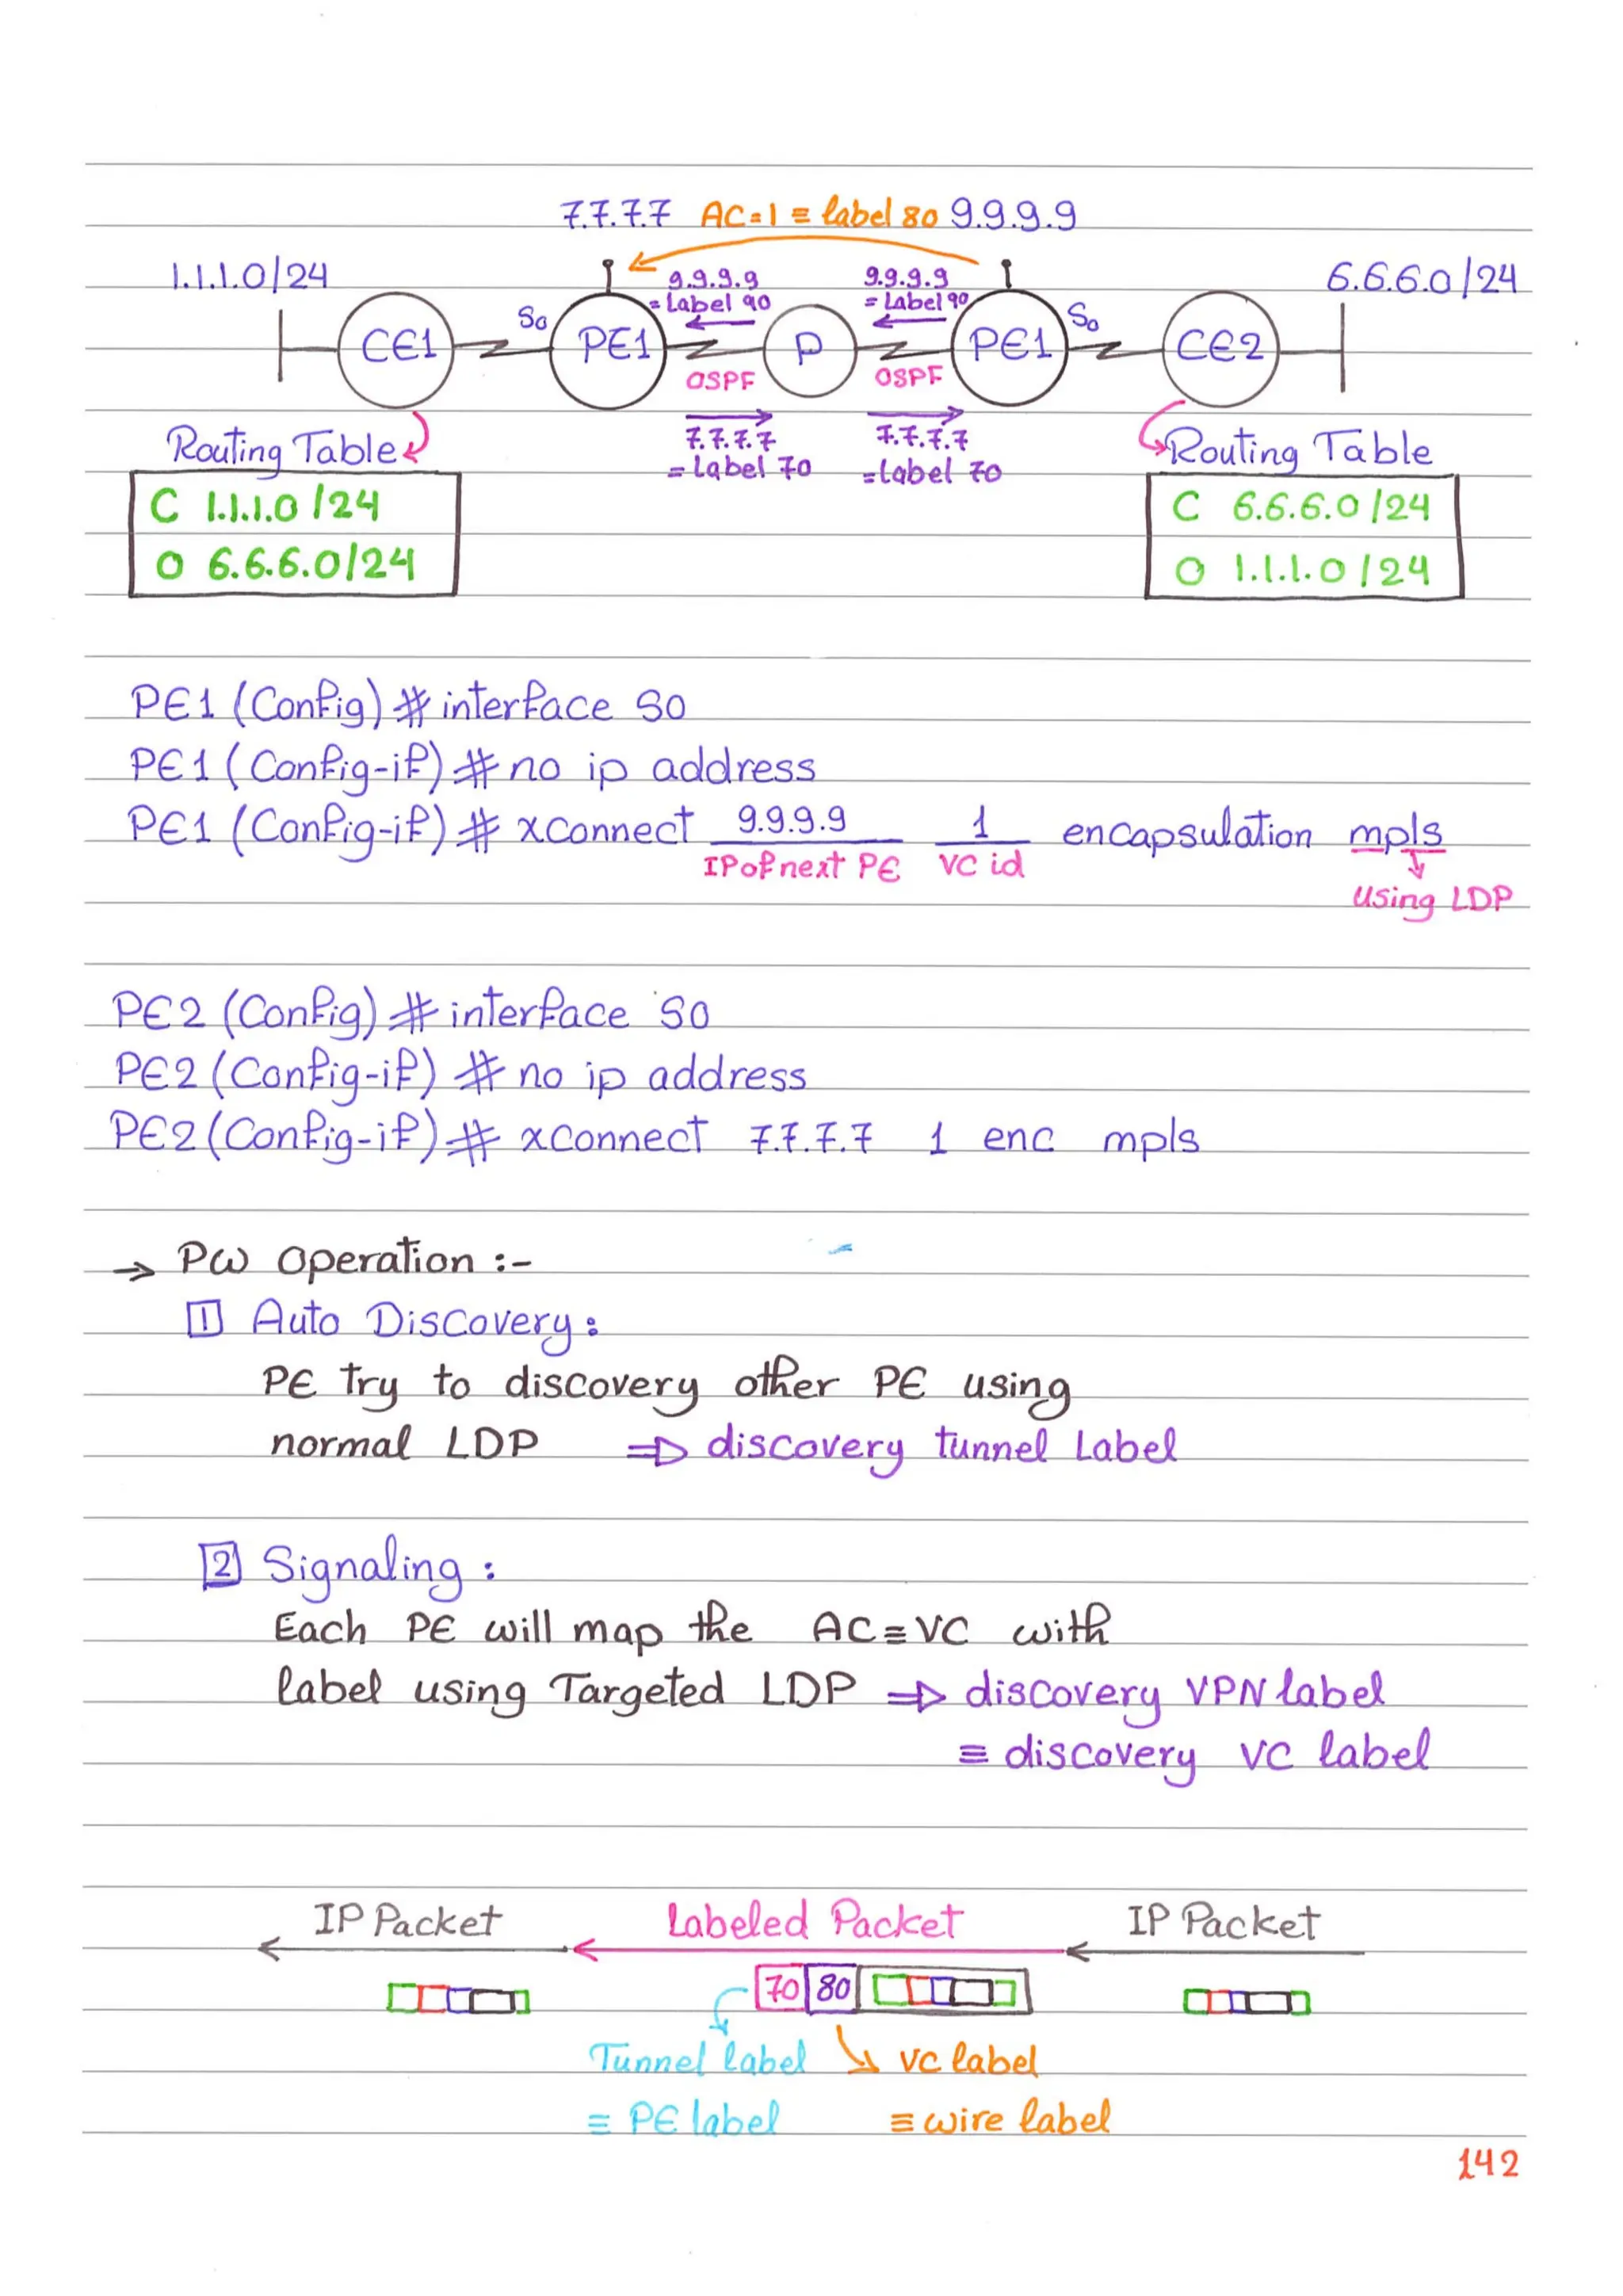 7.7.7.7 AC=1 ≡ label 80 9.9.9.9
1.1.1.0/24
9.9.9.9
= Label 90
9.9.9.9
= Label 90
6.6.6.0/24
CE1
S0
PE1
P
PE1
S0
CE2
OSPF
OSPF
7.7.7.7
= Label 70
7.7.7.7
= label 70
Routing Table
C 1.1.1.0/24
O 6.6.6.0/24
Routing Table
C 6.6.6.0/24
O 1.1.1.0/24
PE1 (Config) # interface S0
PE1 (Config-if) # no ip address
PE1 (Config-if) # xconnect 9.9.9.9 1 encapsulation mpls
IP of next PE VC id
using LDP
PE2 (Config) # interface S0
PE2 (Config-if) # no ip address
PE2 (Config-if) # xconnect 7.7.7.7 1 enc mpls
→ PW Operation :-
1 Auto Discovery:
PE try to discovery other PE using
normal LDP ⇒ discovery tunnel Label
2 Signaling :
Each PE will map the AC ≡ VC with
label using Targeted LDP ⇒ discovery VPN label
≡ discovery VC label
IP Packet
Labeled Packet
IP Packet
70 80
Tunnel label
VC label
≡ PE label
≡ wire label
142